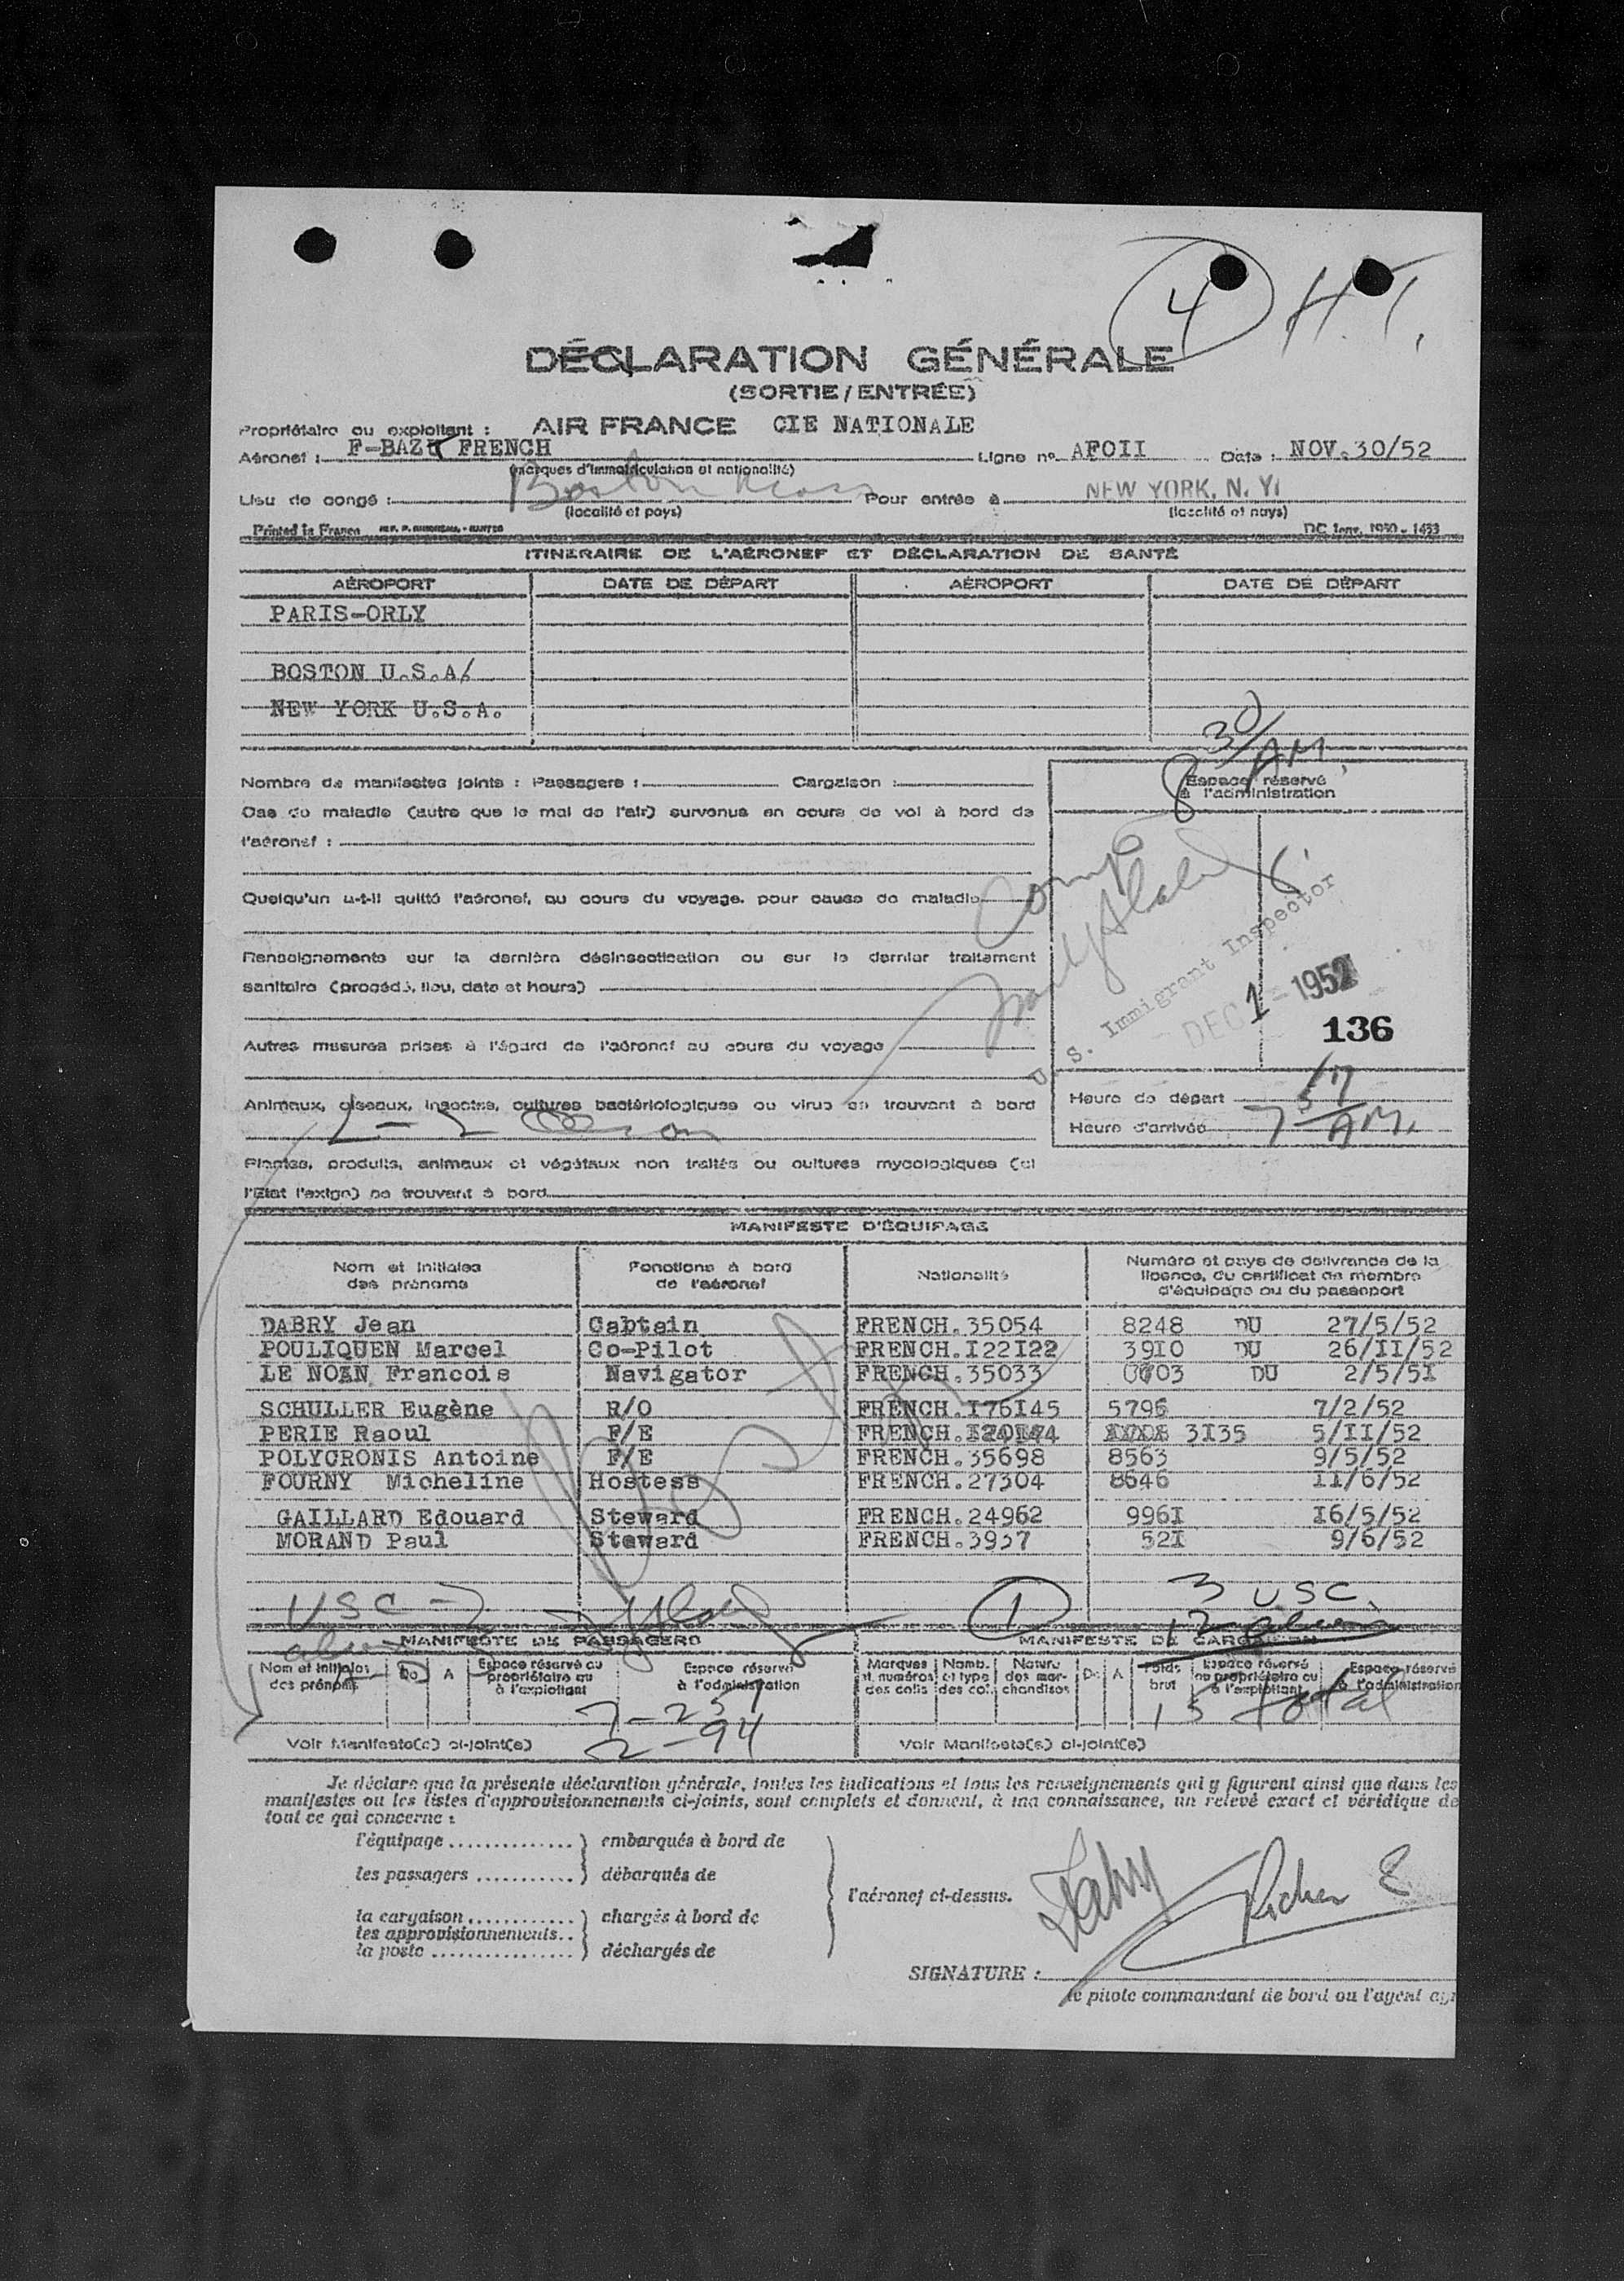 4 H.T.
DÉCLARATION GÉNÉRALE
(SORTIE/ENTRÉE)
Propriétaire ou exploitant : AIR FRANCE CIE NATIONALE
Aéronef : F-BAZ FRENCH Ligne n° AFOII Date : NOV.30/52
(marques d'immatriculation et nationalité)
Lieu de congé : Boston Mass Pour entrée à NEW YORK, N. Y.
(localité et pays) (localité et pays)
Printed in France DC Janv. 1950 - 1433
ITINERAIRE DE L'AÉRONEF ET DÉCLARATION DE SANTÉ
AÉROPORT DATE DE DÉPART AÉROPORT DATE DE DÉPART
PARIS-ORLY
BOSTON U.S.A/
NEW YORK U.S.A.
8 30/AM
Nombre de manifestes joints : Passagers : Cargaison :
Espace réservé
à l'administration
Cas de maladie (autre que le mal de l'air) survenus en cours de vol à bord de
l'aéronef :
Quelqu'un a-t-il quitté l'aéronef, au cours du voyage, pour cause de maladie
Renseignements sur la dernière désinsectisation ou sur le dernier traitement
sanitaire (procédé, lieu, date et heure)
U. S. Immigrant Inspector
DEC 1 - 1952
136
Autres mesures prises à l'égard de l'aéronef au cours du voyage
Animaux, oiseaux, insectes, cultures bactériologiques ou virus se trouvant à bord
Heure de départ
Heure d'arrivée 7 57/AM.
Plantes, produits, animaux et végétaux non traités ou cultures mycologiques (si
l'Etat l'exige) se trouvant à bord
MANIFESTE D'ÉQUIPAGE
Nom et initiales des prénoms Fonctions à bord de l'aéronef Nationalité Numéro et pays de délivrance de la licence, du certificat de membre d'équipage ou du passeport
DABRY Jean Cabtain FRENCH.35054 8248 DU 27/5/52
POULIQUEN Marcel Co-Pilot FRENCH.I22I22 39I0 DU 26/II/52
LE NOAN Francois Navigator FRENCH.35033 0703 DU 2/5/5I
SCHULLER Eugène R/O FRENCH.I76I45 5796 7/2/52
PERIE Raoul F/E FRENCH. 3I35 5/II/52
POLYCRONIS Antoine F/E FRENCH.35698 8563 9/5/52
FOURNY Micheline Hostess FRENCH.27304 8646 II/6/52
GAILLARD Edouard Steward FRENCH.24962 996I I6/5/52
MORAND Paul Steward FRENCH.3957 52I 9/6/52
USC - 2 1 3 USC
12 aliens
MANIFESTE DE PASSAGERS MANIFESTE DE CARGAISON
Nom et initiales des prénoms De A Espace réservé au propriétaire ou à l'exploitant Espace réservé à l'administration Marques et numéros des colis Nomb. et type des col. Nature des marchandises D: A Poids brut Espace réservé au propriétaire ou à l'exploitant Espace réservé à l'administration
15 total
2-94
Voir Manifeste(s) ci-joint(s) Voir Manifeste(s) ci-joint(s)
Je déclare que la présente déclaration générale, toutes les indications et tous les renseignements qui y figurent ainsi que dans les
manifestes ou les listes d'approvisionnements ci-joints, sont complets et donnent, à ma connaissance, un relevé exact et véridique de
tout ce qui concerne :
l'équipage .............. ) embarqués à bord de
les passagers ........... ) débarqués de
l'aéronef ci-dessus.
la cargaison ............ ) chargés à bord de
les approvisionnements..
la poste ................ ) déchargés de
Dabry
SIGNATURE :
le pilote commandant de bord ou l'agent